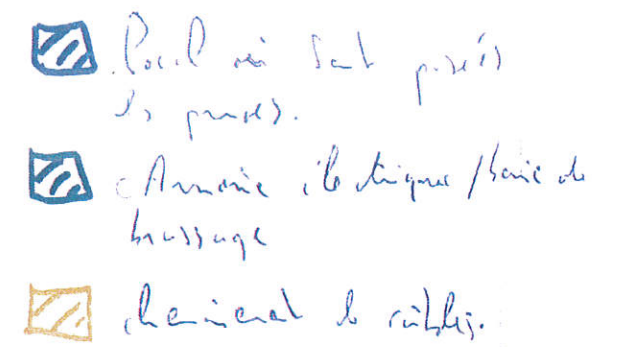 Local où sont posés
les prises.
Armoire électrique / baie de
brassage
cheminement de câbles.